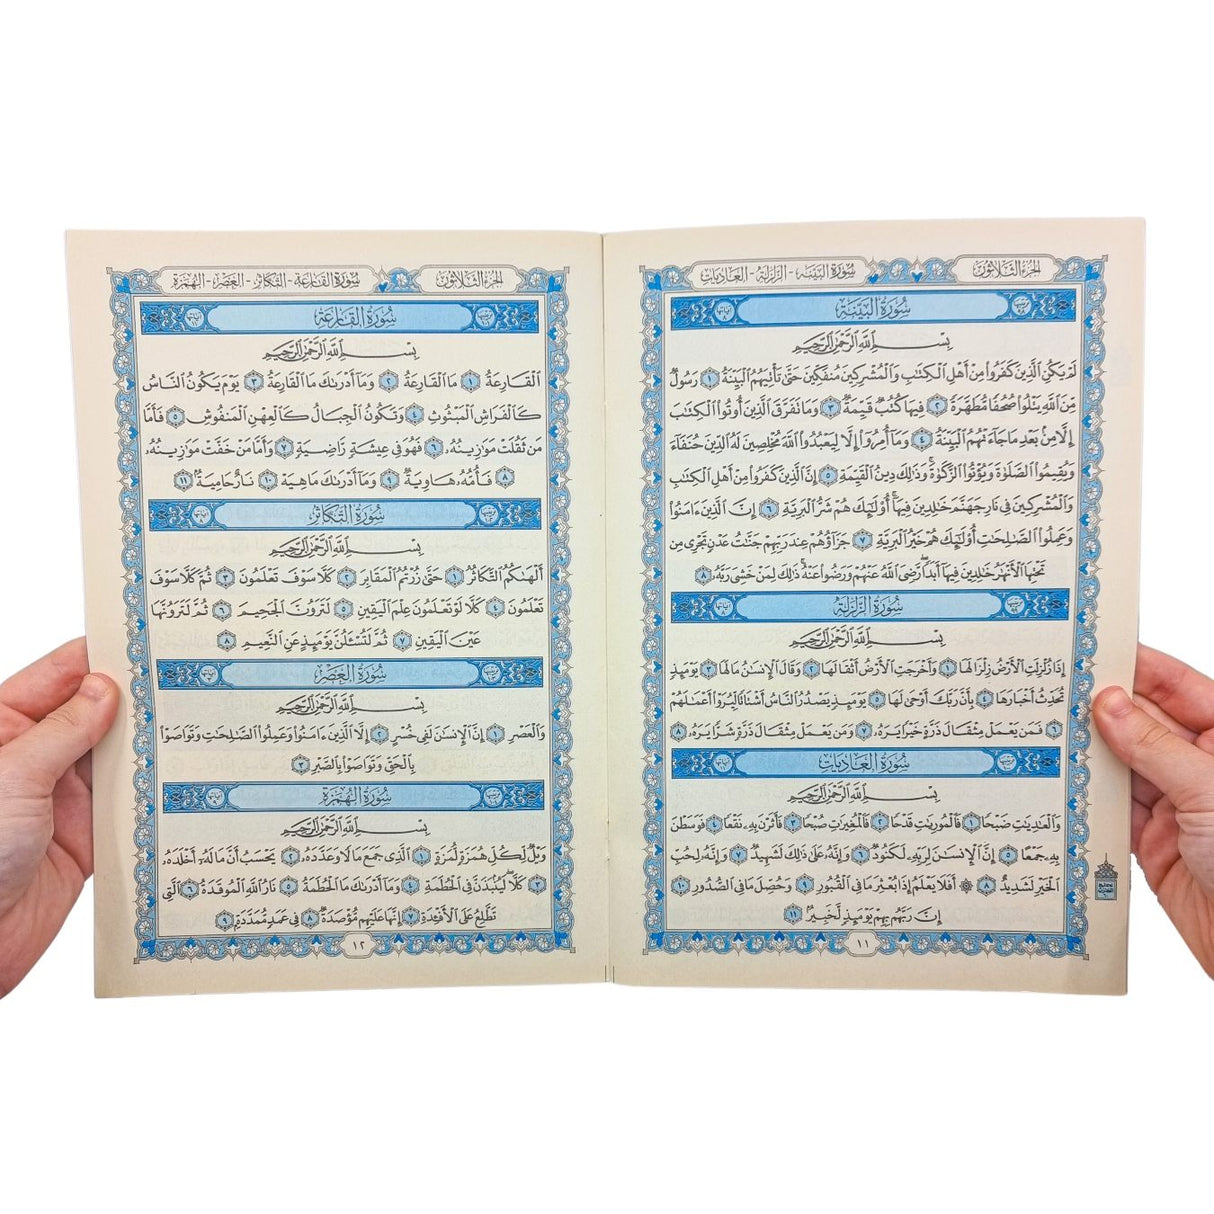 الجزء الثلاثون
سورة البينة - الزلزلة - العاديات
سُورَةُ البَيِّنَة
بِسْمِ ٱللَّهِ ٱلرَّحْمَٰنِ ٱلرَّحِيمِ
لَمْ يَكُنِ ٱلَّذِينَ كَفَرُوا۟ مِنْ أَهْلِ ٱلْكِتَٰبِ وَٱلْمُشْرِكِينَ مُنفَكِّينَ حَتَّىٰ تَأْتِيَهُمُ ٱلْبَيِّنَةُ ١ رَسُولٌ
مِّنَ ٱللَّهِ يَتْلُوا۟ صُحُفًا مُّطَهَّرَةً ٢ فِيهَا كُتُبٌ قَيِّمَةٌ ٣ وَمَا تَفَرَّقَ ٱلَّذِينَ أُوتُوا۟ ٱلْكِتَٰبَ
إِلَّا مِنۢ بَعْدِ مَا جَآءَتْهُمُ ٱلْبَيِّنَةُ ٤ وَمَآ أُمِرُوٓا۟ إِلَّا لِيَعْبُدُوا۟ ٱللَّهَ مُخْلِصِينَ لَهُ ٱلدِّينَ حُنَفَآءَ
وَيُقِيمُوا۟ ٱلصَّلَوٰةَ وَيُؤْتُوا۟ ٱلزَّكَوٰةَ ۚ وَذَٰلِكَ دِينُ ٱلْقَيِّمَةِ ٥ إِنَّ ٱلَّذِينَ كَفَرُوا۟ مِنْ أَهْلِ ٱلْكِتَٰبِ
وَٱلْمُشْرِكِينَ فِى نَارِ جَهَنَّمَ خَٰلِدِينَ فِيهَآ ۚ أُو۟لَٰٓئِكَ هُمْ شَرُّ ٱلْبَرِيَّةِ ٦ إِنَّ ٱلَّذِينَ ءَامَنُوا۟
وَعَمِلُوا۟ ٱلصَّٰلِحَٰتِ أُو۟لَٰٓئِكَ هُمْ خَيْرُ ٱلْبَرِيَّةِ ٧ جَزَآؤُهُمْ عِندَ رَبِّهِمْ جَنَّٰتُ عَدْنٍ تَجْرِى مِن
تَحْتِهَا ٱلْأَنْهَٰرُ خَٰلِدِينَ فِيهَآ أَبَدًا ۖ رَّضِىَ ٱللَّهُ عَنْهُمْ وَرَضُوا۟ عَنْهُ ۚ ذَٰلِكَ لِمَنْ خَشِىَ رَبَّهُۥ ٨
سُورَةُ الزَّلْزَلَة
بِسْمِ ٱللَّهِ ٱلرَّحْمَٰنِ ٱلرَّحِيمِ
إِذَا زُلْزِلَتِ ٱلْأَرْضُ زِلْزَالَهَا ١ وَأَخْرَجَتِ ٱلْأَرْضُ أَثْقَالَهَا ٢ وَقَالَ ٱلْإِنسَٰنُ مَا لَهَا ٣ يَوْمَئِذٍ
تُحَدِّثُ أَخْبَارَهَا ٤ بِأَنَّ رَبَّكَ أَوْحَىٰ لَهَا ٥ يَوْمَئِذٍ يَصْدُرُ ٱلنَّاسُ أَشْتَاتًا لِّيُرَوْا۟ أَعْمَٰلَهُمْ
٦ فَمَن يَعْمَلْ مِثْقَالَ ذَرَّةٍ خَيْرًا يَرَهُۥ ٧ وَمَن يَعْمَلْ مِثْقَالَ ذَرَّةٍ شَرًّا يَرَهُۥ ٨
سُورَةُ العَادِيَات
بِسْمِ ٱللَّهِ ٱلرَّحْمَٰنِ ٱلرَّحِيمِ
وَٱلْعَٰدِيَٰتِ ضَبْحًا ١ فَٱلْمُورِيَٰتِ قَدْحًا ٢ فَٱلْمُغِيرَٰتِ صُبْحًا ٣ فَأَثَرْنَ بِهِۦ نَقْعًا ٤ فَوَسَطْنَ
بِهِۦ جَمْعًا ٥ إِنَّ ٱلْإِنسَٰنَ لِرَبِّهِۦ لَكَنُودٌ ٦ وَإِنَّهُۥ عَلَىٰ ذَٰلِكَ لَشَهِيدٌ ٧ وَإِنَّهُۥ لِحُبِّ
ٱلْخَيْرِ لَشَدِيدٌ ٨ ۞ أَفَلَا يَعْلَمُ إِذَا بُعْثِرَ مَا فِى ٱلْقُبُورِ ٩ وَحُصِّلَ مَا فِى ٱلصُّدُورِ ١٠
إِنَّ رَبَّهُم بِهِمْ يَوْمَئِذٍ لَّخَبِيرٌۢ ١١
١١
الجزء الثلاثون
سورة القارعة - التكاثر - العصر - الهمزة
سُورَةُ القَارِعَة
بِسْمِ ٱللَّهِ ٱلرَّحْمَٰنِ ٱلرَّحِيمِ
ٱلْقَارِعَةُ ١ مَا ٱلْقَارِعَةُ ٢ وَمَآ أَدْرَىٰكَ مَا ٱلْقَارِعَةُ ٣ يَوْمَ يَكُونُ ٱلنَّاسُ
كَٱلْفَرَاشِ ٱلْمَبْثُوثِ ٤ وَتَكُونُ ٱلْجِبَالُ كَٱلْعِهْنِ ٱلْمَنفُوشِ ٥ فَأَمَّا
مَن ثَقُلَتْ مَوَٰزِينُهُۥ ٦ فَهُوَ فِى عِيشَةٍ رَّاضِيَةٍ ٧ وَأَمَّا مَنْ خَفَّتْ مَوَٰزِينُهُۥ
٨ فَأُمُّهُۥ هَاوِيَةٌ ٩ وَمَآ أَدْرَىٰكَ مَا هِيَهْ ١٠ نَارٌ حَامِيَةٌۢ ١١
سُورَةُ التَّكَاثُر
بِسْمِ ٱللَّهِ ٱلرَّحْمَٰنِ ٱلرَّحِيمِ
أَلْهَىٰكُمُ ٱلتَّكَاثُرُ ١ حَتَّىٰ زُرْتُمُ ٱلْمَقَابِرَ ٢ كَلَّا سَوْفَ تَعْلَمُونَ ٣ ثُمَّ كَلَّا سَوْفَ
تَعْلَمُونَ ٤ كَلَّا لَوْ تَعْلَمُونَ عِلْمَ ٱلْيَقِينِ ٥ لَتَرَوُنَّ ٱلْجَحِيمَ ٦ ثُمَّ لَتَرَوُنَّهَا
عَيْنَ ٱلْيَقِينِ ٧ ثُمَّ لَتُسْـَٔلُنَّ يَوْمَئِذٍ عَنِ ٱلنَّعِيمِ ٨
سُورَةُ العَصْر
بِسْمِ ٱللَّهِ ٱلرَّحْمَٰنِ ٱلرَّحِيمِ
وَٱلْعَصْرِ ١ إِنَّ ٱلْإِنسَٰنَ لَفِى خُسْرٍ ٢ إِلَّا ٱلَّذِينَ ءَامَنُوا۟ وَعَمِلُوا۟ ٱلصَّٰلِحَٰتِ وَتَوَاصَوْا۟
بِٱلْحَقِّ وَتَوَاصَوْا۟ بِٱلصَّبْرِ ٣
سُورَةُ الهُمَزَة
بِسْمِ ٱللَّهِ ٱلرَّحْمَٰنِ ٱلرَّحِيمِ
وَيْلٌ لِّكُلِّ هُمَزَةٍ لُّمَزَةٍ ١ ٱلَّذِى جَمَعَ مَالًا وَعَدَّدَهُۥ ٢ يَحْسَبُ أَنَّ مَالَهُۥٓ أَخْلَدَهُۥ
٣ كَلَّا ۖ لَيُنۢبَذَنَّ فِى ٱلْحُطَمَةِ ٤ وَمَآ أَدْرَىٰكَ مَا ٱلْحُطَمَةُ ٥ نَارُ ٱللَّهِ ٱلْمُوقَدَةُ ٦ ٱلَّتِى
تَطَّلِعُ عَلَى ٱلْأَفْـِٔدَةِ ٧ إِنَّهَا عَلَيْهِم مُّؤْصَدَةٌ ٨ فِى عَمَدٍ مُّمَدَّدَةٍۭ ٩
١٢